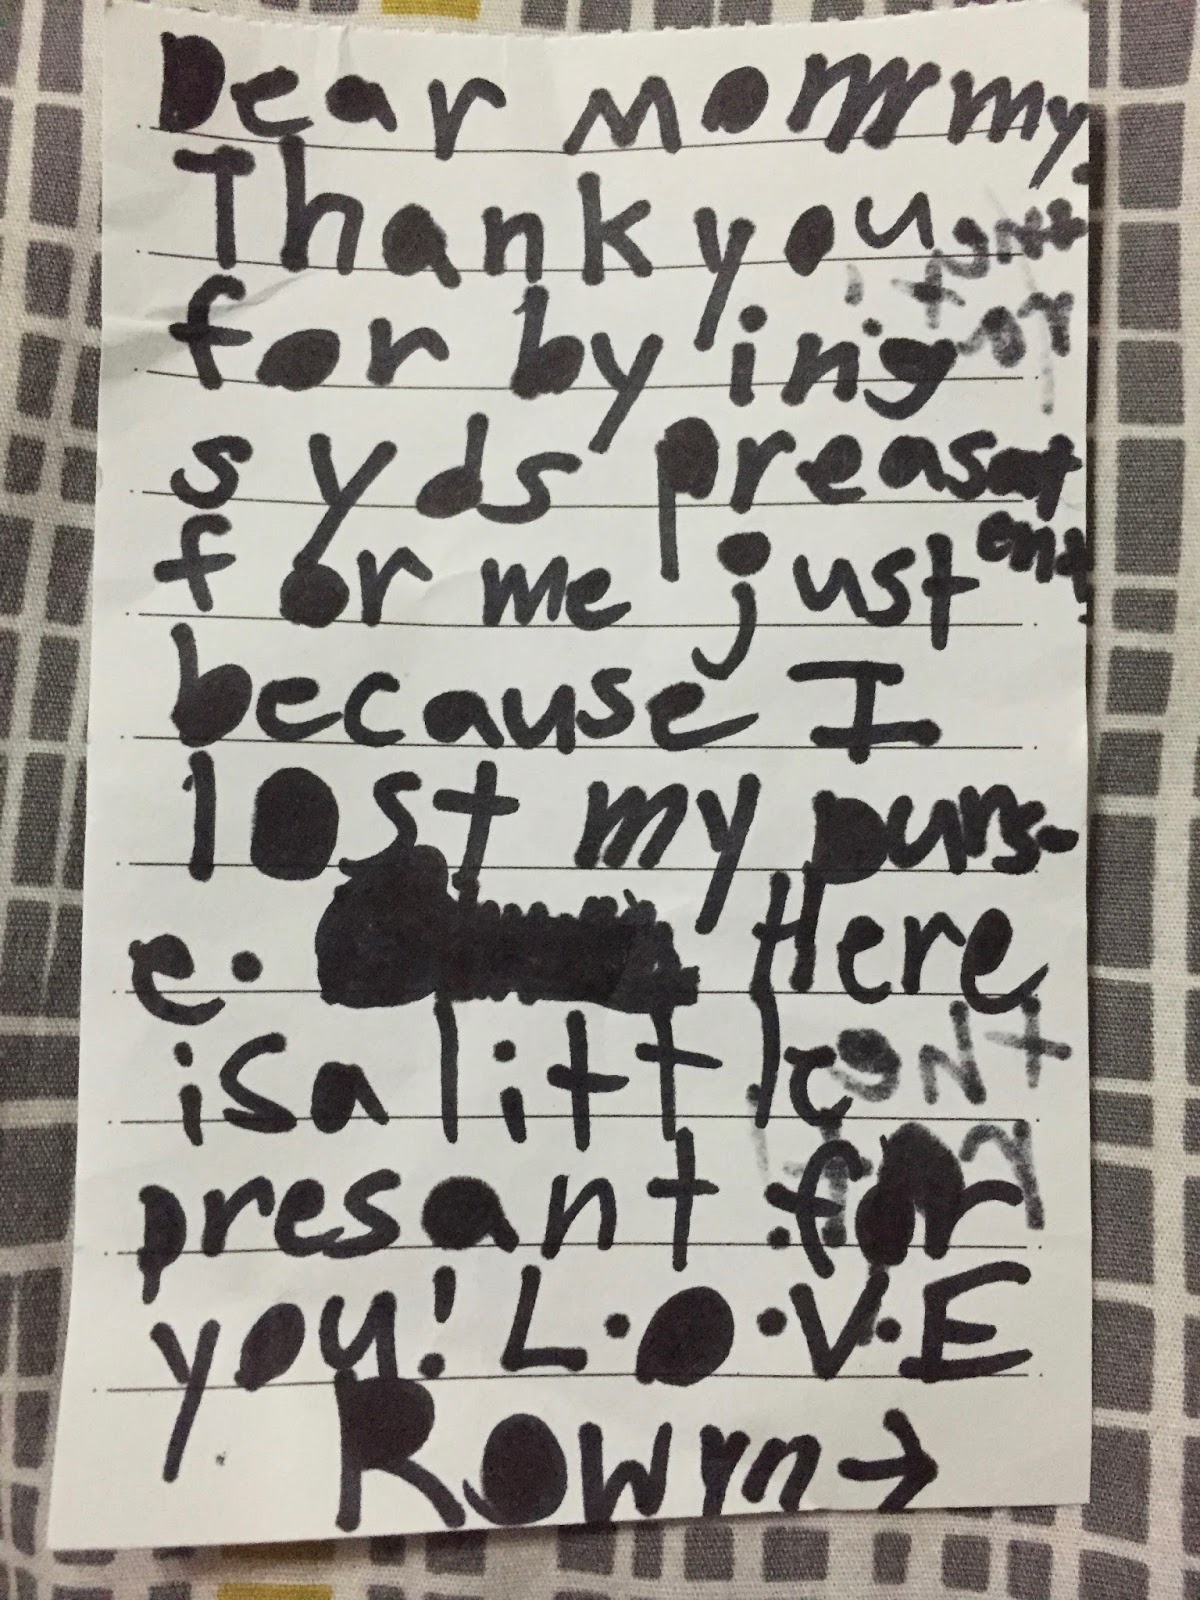 Dear mommy.
Thank you
for bying
s yds preasat
for me just
because I
lost my purs-
e. Here
is a little
presant for
you! L.O.V.E
Rowyn →